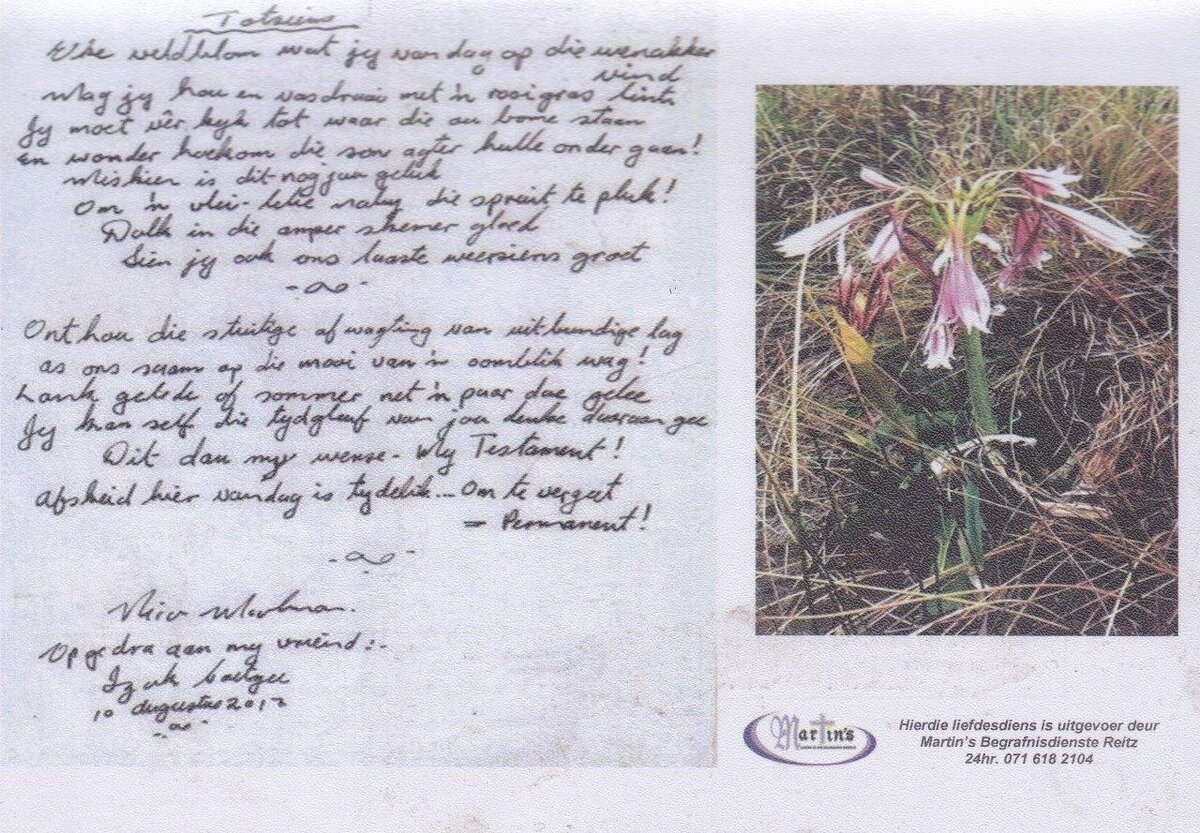 Totsiens
Elke veldblom wat jy vandag op die wenakker
vind
Mag jy hou en vasdraai met 'n rooigras lint
Jy moet vêr kyk tot waar die ou bome staan
en wonder hoekom die son agter hulle ondergaan!
Miskien is dit nog jou geluk
Om 'n vlei-lelie naby die spruit te pluk!
Dalk in die amper skemer gloed
Sien jy ook ons laaste weersiens groet
Onthou die stuitige afwagting van uitbundige lag
as ons saam op die mooi van 'n oomblik wag!
Lank gelede of sommer net 'n paar dae gelee
Jy kan self die tydgleuf van jou denke daaraan gee
Dit dan my wense - My Testament!
Afsheid hier vandag is tydelik... Om te vergeet
= Permanent!
Opgedra aan my vriend :-
Izak Coetzee
10 Augustus
Martin's
Hierdie liefdesdiens is uitgevoer deur
Martin's Begrafnisdienste Reitz
24hr. 071 618 2104